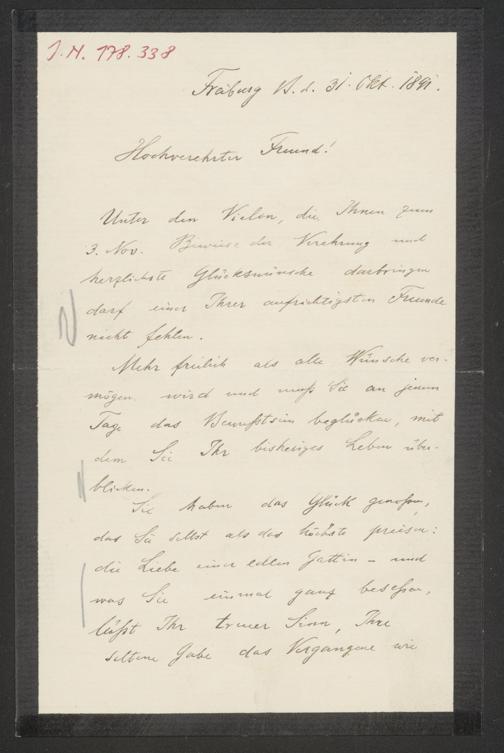 J.N. 178.338
Freiburg i/B. d. 31. Okt. 1891.
Hochverehrter Freund!
Unter den Vielen, die Ihnen zum
3. Nov. Beweise der Verehrung und
herzlichste Glückswünsche darbringen
darf einer Ihrer aufrichtigsten Freunde
nicht fehlen.
Mehr freilich als alle Wünsche ver-
mögen wird und muß Sie an jenem
Tage das Bewußtsein beglücken, mit
dem Sie Ihr bisheriges Leben über-
blicken.
Sie haben das Glück genossen,
das Sie selbst als das höchste preisen:
die Liebe einer edlen Gattin – und
was Sie einmal ganz besessen,
läßt Ihr treuer Sinn, Ihre
seltene Gabe das Vergangene wie